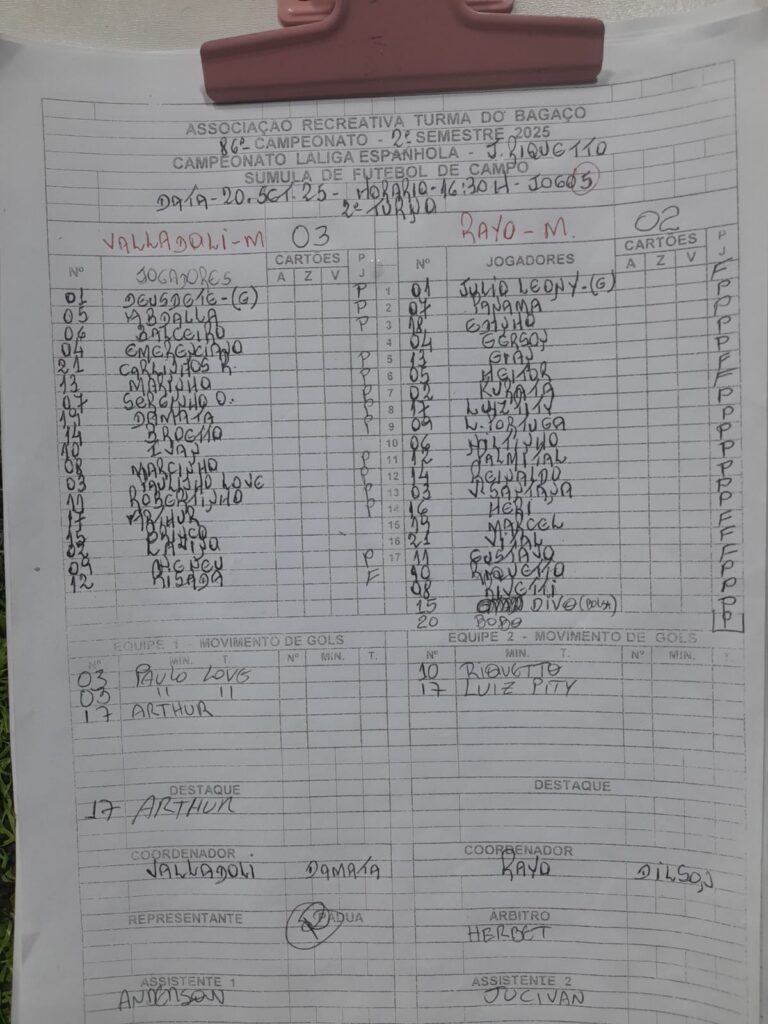 ASSOCIAÇÃO RECREATIVA TURMA DO BAGAÇO
86º CAMPEONATO - 2º SEMESTRE 2025
CAMPEONATO LALIGA ESPANHOLA - J. RIQUETTO
SUMULA DE FUTEBOL DE CAMPO
DATA - 20.SET.25 - HORÁRIO - 16:30H - JOGO 5
2º TURNO
VALLADOLI - M 03 RAYO - M. 02
Nº JOGADORES CARTÕES P J Nº JOGADORES CARTÕES P J
A Z V A Z V
01 DEUSDETE - (G) P 1 01 JULIO LEONY - (G) F
05 ABDALLA P 2 07 PANAMA P
06 BALCEIRO P 3 18 EDINHO P
04 EMERENCIANO 04 GERSON P
21 CARLINHOS R. P 5 13 P
13 MARINHO P 6 05 HEITOR F
07 SERGINHO O. P 7 02 KUBATA F
19 DAMATA P 8 17 P
14 BROCTO P 9 09 L. PORTUGA P
10 IVAN 10 06 NILTINHO P
08 MARCINHO P 11 12 PALMITAL P
03 PAULINHO LOVE P 12 14 REINALDO P
ROBERTINHO P 13 03 V. SANTANA P
17 ARTHUR P 14 16 HERI P
15 15 19 MARCEL F
02 16 21 VITAL F
09 P 17 11 GUSTAVO F
12 RISADA F 10 RIQUETTO P
08 RIVETTI P
15 DIVO (BOLSA) P
20 BOBO P
EQUIPE 1 - MOVIMENTO DE GOLS EQUIPE 2 - MOVIMENTO DE GOLS
Nº MIN. T. Nº MIN. T. Nº MIN. T. Nº MIN. T.
03 PAULO LOVE 10 RIQUETTO
03 " " 17 LUIZ PITY
17 ARTHUR
DESTAQUE DESTAQUE
17 ARTHUR
COORDENADOR COORDENADOR
VALLADOLI DAMATA RAYO DILSON
REPRESENTANTE PADUA ÁRBITRO
HERBET
ASSISTENTE 1 ASSISTENTE 2
ANDERSON JUCIVAN